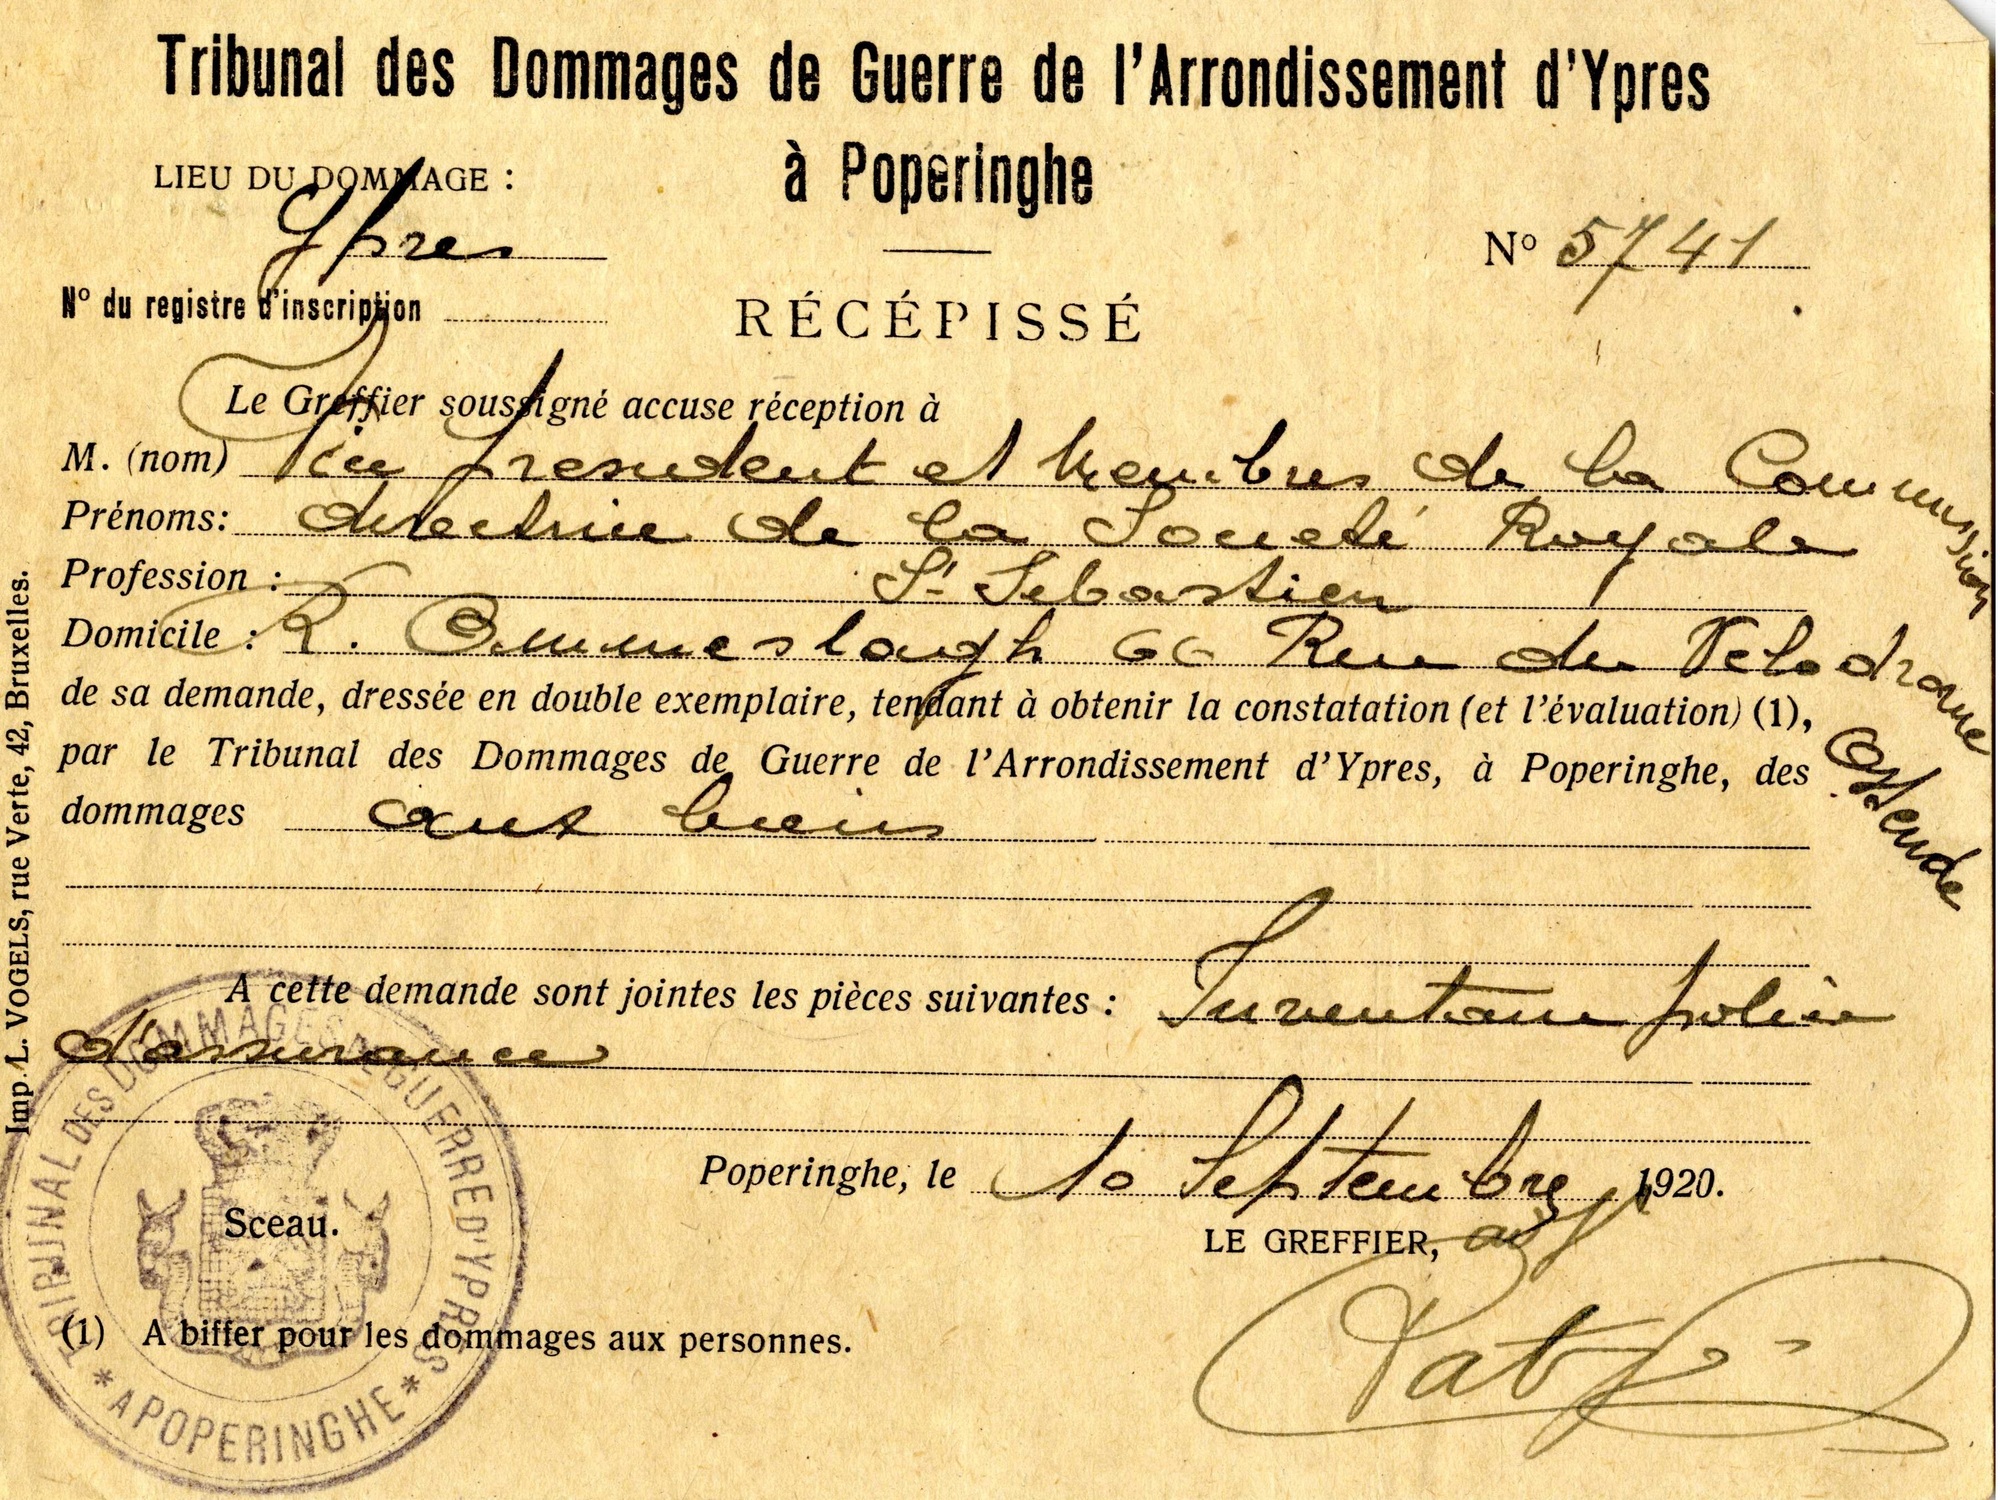 Tribunal des Dommages de Guerre de l'Arrondissement d'Ypres
à Poperinghe
LIEU DU DOMMAGE :
Ypres
N° 5741
N° du registre d'inscription
RÉCÉPISSÉ
Le Greffier soussigné accuse réception à
M. (nom) Vice president et Membres de la Commission
Prénoms: directrice de la Société Royale
Profession : St Sebastien
Domicile : R. Ommeslagh 66 Rue du Velodrome
Ostende
de sa demande, dressée en double exemplaire, tendant à obtenir la constatation (et l'évaluation) (1),
par le Tribunal des Dommages de Guerre de l'Arrondissement d'Ypres, à Poperinghe, des
dommages aux biens
A cette demande sont jointes les pièces suivantes : Inventaire police
d'assurance
Poperinghe, le 10 Septembre 1920.
LE GREFFIER,
Sceau.
(1) A biffer pour les dommages aux personnes.
TRIBUNAL DES DOMMAGES DE GUERRE D'YPRES
* A POPERINGHE *
Imp. L. VOGELS, rue Verte, 42, Bruxelles.